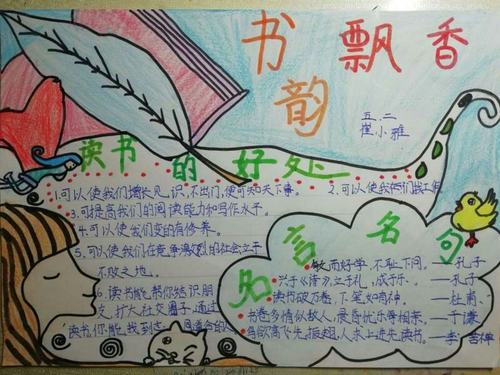 书飘香
韵
五.二
崔小雅
读书的好处
1.可以使我们增长见识,不出门,便可知天下事。
2.可以使我们
3.可提高我们的阅读能力和写作水平。
4.可以使我们变的有修养。
5.可以使我们在竞争激烈的社会立于
不败之地。
6.读书能帮你结识朋
友,扩大社交圈子,通过
读书,你能找到志
名言名句
敏而好学,不耻下问。——孔子
兴于《诗》,立于礼,成于乐。——孔子
读书破万卷,下笔如有神。——杜甫
书卷多情似故人,晨昏忧乐每相亲。——于谦
鸟欲高飞先振翅,人求上进先读书。——李苦禅